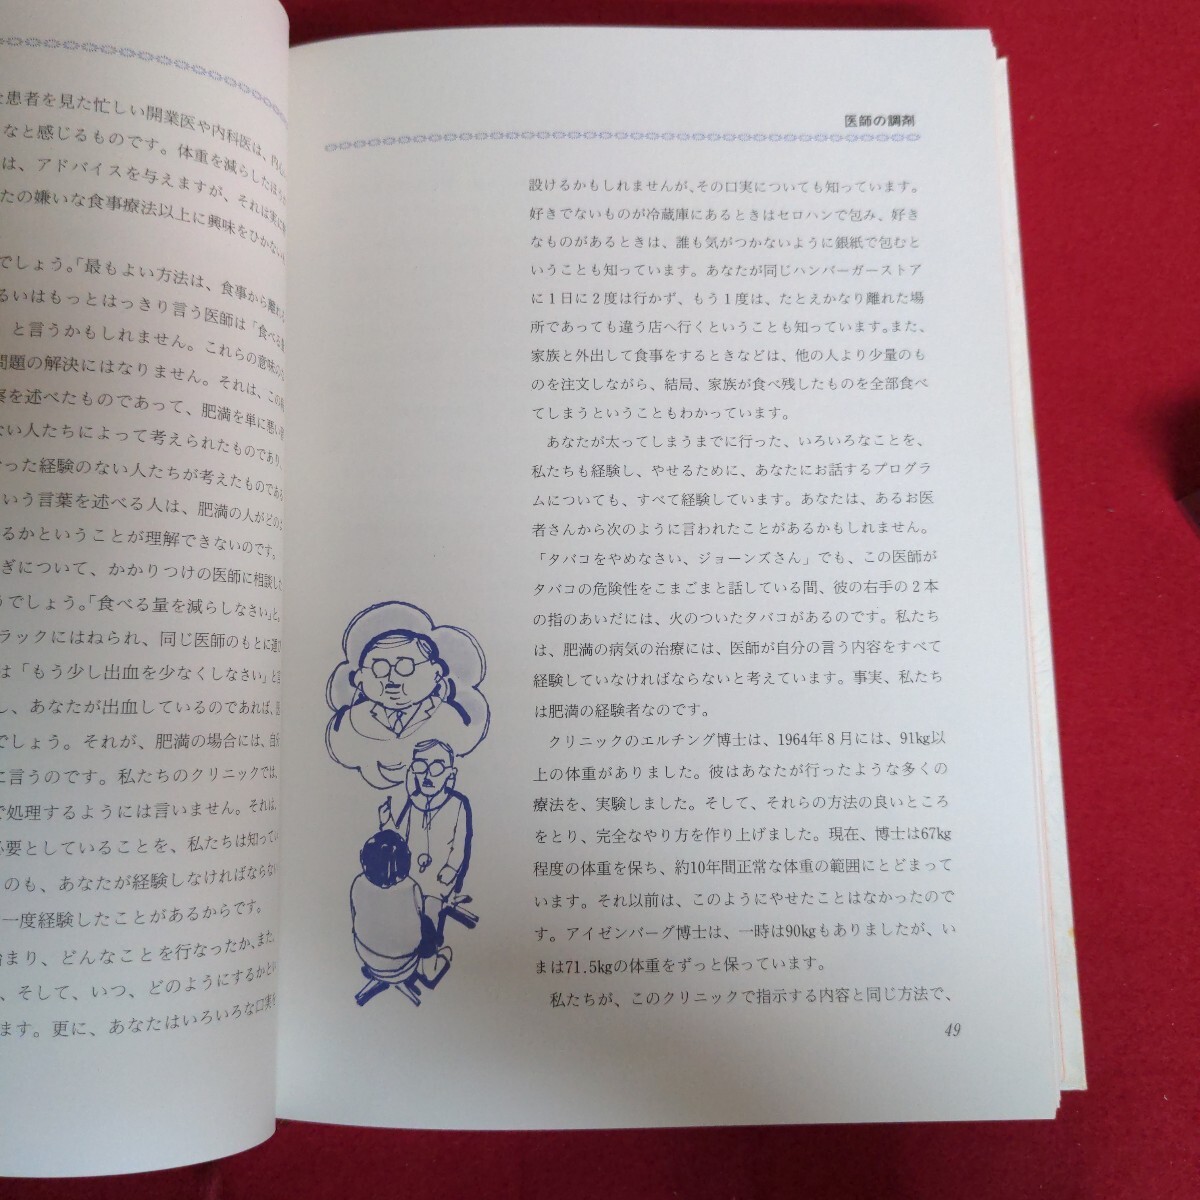 患者を見た忙しい開業医や内科医は、
なと感じるものです。体重を減らしたほう
は、アドバイスを与えますが、それは実に
たの嫌いな食事療法以上に興味をひかない
でしょう。「最もよい方法は、食事から離れる
るいはもっとはっきり言う医師は「食べる量
」と言うかもしれません。これらの意味の
問題の解決にはなりません。それは、この
察を述べたものであって、肥満を単に悪い
ない人たちによって考えられたものであり、
なった経験のない人たちが考えたものである
いう言葉を述べる人は、肥満の人がどの
るかということが理解できないのです。
ぎについて、かかりつけの医師に相談し
うでしょう。「食べる量を減らしなさい」と、
ラックにはねられ、同じ医師のもとに
は「もう少し出血を少なくしなさい」と
し、あなたが出血しているのであれば、
でしょう。それが、肥満の場合には、
に言うのです。私たちのクリニックでは、
で処理するようには言いません。それは、
必要としていることを、私たちは知ってい
のも、あなたが経験しなければならない
一度経験したことがあるからです。
始まり、どんなことを行なったか、また、
、そして、いつ、どのようにするかとい
ます。更に、あなたはいろいろな口実を
医師の調剤
設けるかもしれませんが、その口実についても知っています。
好きでないものが冷蔵庫にあるときはセロハンで包み、好き
なものがあるときは、誰も気がつかないように銀紙で包むと
いうことも知っています。あなたが同じハンバーガーストア
に1日に2度は行かず、もう1度は、たとえかなり離れた場
所であっても違う店へ行くということも知っています。また、
家族と外出して食事をするときなどは、他の人より少量のも
のを注文しながら、結局、家族が食べ残したものを全部食べ
てしまうということもわかっています。
あなたが太ってしまうまでに行った、いろいろなことを、
私たちも経験し、やせるために、あなたにお話するプログラ
ムについても、すべて経験しています。あなたは、あるお医
者さんから次のように言われたことがあるかもしれません。
「タバコをやめなさい、ジョーンズさん」でも、この医師が
タバコの危険性をこまごまと話している間、彼の右手の2本
の指のあいだには、火のついたタバコがあるのです。私たち
は、肥満の病気の治療には、医師が自分の言う内容をすべて
経験していなければならないと考えています。事実、私たち
は肥満の経験者なのです。
クリニックのエルチング博士は、1964年8月には、91kg以
上の体重がありました。彼はあなたが行ったような多くの
療法を、実験しました。そして、それらの方法の良いところ
をとり、完全なやり方を作り上げました。現在、博士は67kg
程度の体重を保ち、約10年間正常な体重の範囲にとどまって
います。それ以前は、このようにやせたことはなかったので
す。アイゼンバーグ博士は、一時は90kgもありましたが、い
まは71.5kgの体重をずっと保っています。
私たちが、このクリニックで指示する内容と同じ方法で、
49